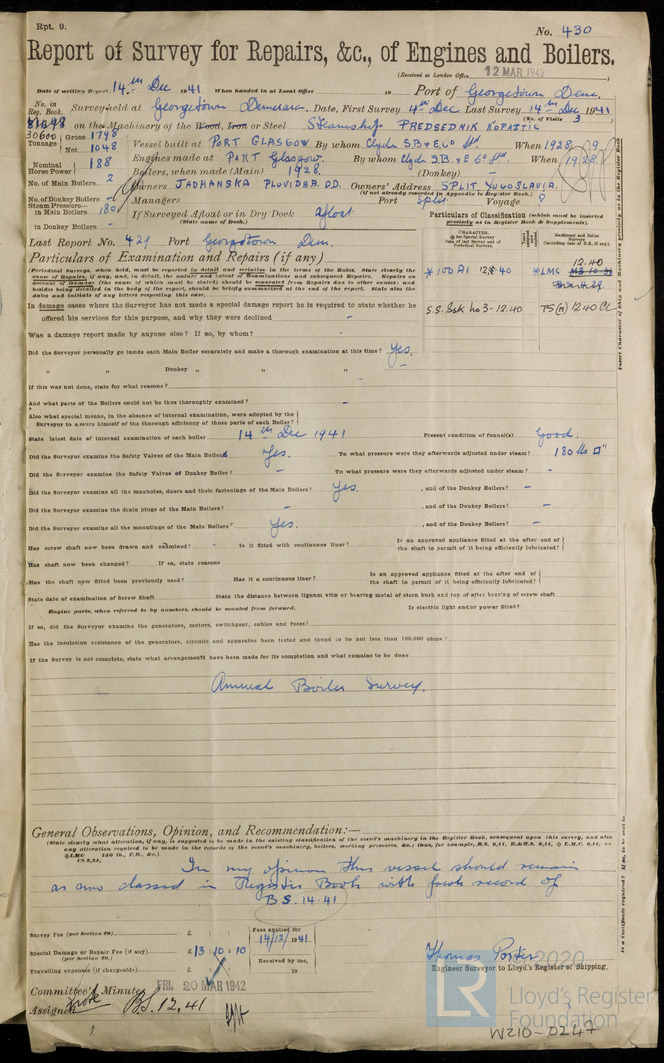 Rpt. 9.
No. 430
Report of Survey for Repairs, &c., of Engines and Boilers.
(Received at London Office 12 MAR 1942
Date of writing Report 14th Dec 1941 When handed in at Local Office 19 Port of Georgetown Dem.
No. in Reg. Book. Survey held at Georgetown Demerara. Date, First Survey 4th Dec Last Survey 14th Dec 1941
(No. of Visits 3)
30600 on the Machinery of the Wood, Iron or Steel Steamship PREDSEDNIK KOPAJTIC
Tonnage Gross 1798 Net 1048
Vessel built at PORT GLASGOW By whom Clyde S.B & E Co Ltd When 1928 9
Nominal Horse Power 188
Engines made at PORT Glasgow. By whom Clyde S.B. & E Co Ltd. When 1928
No. of Main Boilers 2
Boilers, when made (Main) 1928 (Donkey) -
No. of Donkey Boilers -
Owners JADRANSKA PLOVIDBA D.D. Owners' Address SPLIT, YUGOSLAVIA.
(if not already recorded in Appendix to Register Book.)
Steam Pressure— in Main Boilers 180
Managers Port Split. Voyage ?
in Donkey Boilers -
If Surveyed Afloat or in Dry Dock afloat
(State name of Dock.)
Particulars of Classification (which must be inserted precisely as in Register Book & Supplements).
Last Report No. 421 Port Georgetown Dem.
Particulars of Examination and Repairs (if any)
(Periodical surveys, when held, must be reported in detail and seriatim in the terms of the Rules. State clearly the cause of Repairs, if any, and, in detail, the nature and extent of Examinations and subsequent Repairs. Repairs on account of Damage (the cause of which must be stated) should be separated from Repairs due to other causes; and besides being detailed in the body of the report, should be briefly summarized at the end of the report. State also the dates and initials of any letters respecting this case.
CHARACTER.
Machinery and Boiler Surveys
* 100 A1 12.40
12.40
* LMC
S.S. Spk No 3 - 12.40
TS(N) 12.40 CL
Insert Character of Ship and Machinery precisely as in the Register Book
In damage cases where the Surveyor has not made a special damage report he is required to state whether he offered his services for this purpose, and why they were declined -
Was a damage report made by anyone else? If so, by whom? -
Did the Surveyor personally go inside each Main Boiler separately and make a thorough examination at this time? Yes.
" " Donkey " " " -
If this was not done, state for what reasons?
And what parts of the Boilers could not be thus thoroughly examined? -
Also what special means, in the absence of internal examination, were adopted by the Surveyor to assure himself of the thorough efficiency of those parts of each Boiler? -
State latest date of internal examination of each boiler 14th Dec 1941 Present condition of funnel(s) Good.
Did the Surveyor examine the Safety Valves of the Main Boilers Yes. To what pressure were they afterwards adjusted under steam? 180 lbs □"
Did the Surveyor examine the Safety Valves of Donkey Boiler? - To what pressure were they afterwards adjusted under steam? -
Did the Surveyor examine all the manholes, doors and their fastenings of the Main Boilers? Yes. , and of the Donkey Boilers? -
Did the Surveyor examine the drain plugs of the Main Boilers? - , and of the Donkey Boilers? -
Did the Surveyor examine all the mountings of the Main Boilers? Yes. , and of the Donkey Boilers? -
Has screw shaft now been drawn and examined? Is it fitted with continuous liner? Is an approved appliance fitted at the after end of the shaft to permit of it being efficiently lubricated?
Has shaft now been changed? If so, state reasons
Has the shaft now fitted been previously used? Has it a continuous liner? Is an approved appliance fitted at the after end of the shaft to permit of it being efficiently lubricated?
State date of examination of Screw Shaft State the distance between lignum vitæ or bearing metal of stern bush and top of after bearing of screw shaft
Engine parts, when referred to by numbers, should be counted from forward. Is electric light and/or power fitted?
If so, did the Surveyor examine the generators, motors, switchgear, cables and fuses?
Has the insulation resistance of the generators, circuits and apparatus been tested and found to be not less than 100,000 ohms?
If the Survey is not complete, state what arrangements have been made for its completion and what remains to be done
Annual Boiler Survey.
General Observations, Opinion, and Recommendation:—
(State clearly what alteration, if any, is suggested to be made in the existing classification of the vessel's machinery in the Register Book, consequent upon this survey, and also any alteration required to be made in the records of the vessel's machinery, boilers, working pressure, &c.; thus, for example, B.S. 9,11, B.&M.S. 9,11, L.M.C. 9,11, or
In my opinion this vessel should remain
as now classed in Register Book with fresh record of
B S. 14.41
Survey Fee (per Section 29) £ : :
Special Damage or Repair Fee (if any) £13 : 10 : 10
(per Section 29.)
Travelling expenses (if chargeable) £ : :
Fees applied for
14/12/1941
Received by me,
19
Thomas Porter
Engineer Surveyor to Lloyd's Register of Shipping.
Committee's Minute FRI. 20 MAR 1942
Assigned BS. 12.41
© 2020
LR
Lloyd's Register
Foundation
W210-0247